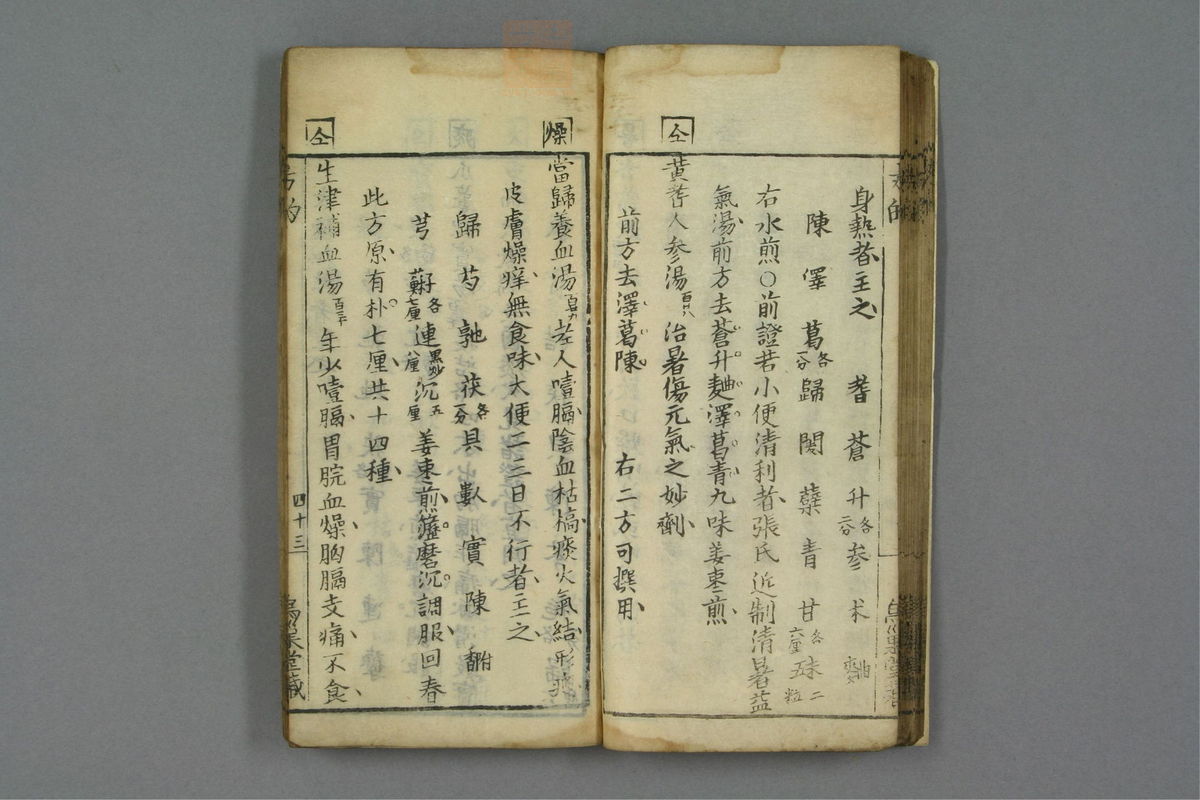 身熱者主之 耆 蒼 升各二分 参 朮 曲
陳 澤 葛各一分 歸 閏 蘗 青 甘各六厘 五味二粒
右水煎〇前證若小便清利者張氏近制清暑益
氣湯前方去蒼升麯澤葛青九味姜棗煎
仝 黄耆人参湯百廿八 治暑傷元氣之妙劑
前方去澤葛陳 右二方可撰用
燥 當歸養血湯 老人噎膈陰血枯槁痰火氣結形
皮膚燥痒無食味大便二三日不行者主之
歸 芍 地 茯各一分 貝 實 陳 香附
芎 蘇子各七厘 連黒炒八厘 沉五厘 姜棗煎 磨沉調服回春
此方原有朴七厘共十四種
仝 生津補血湯百三十 年少噎膈胃脘血燥胸膈支痛不食
四十三